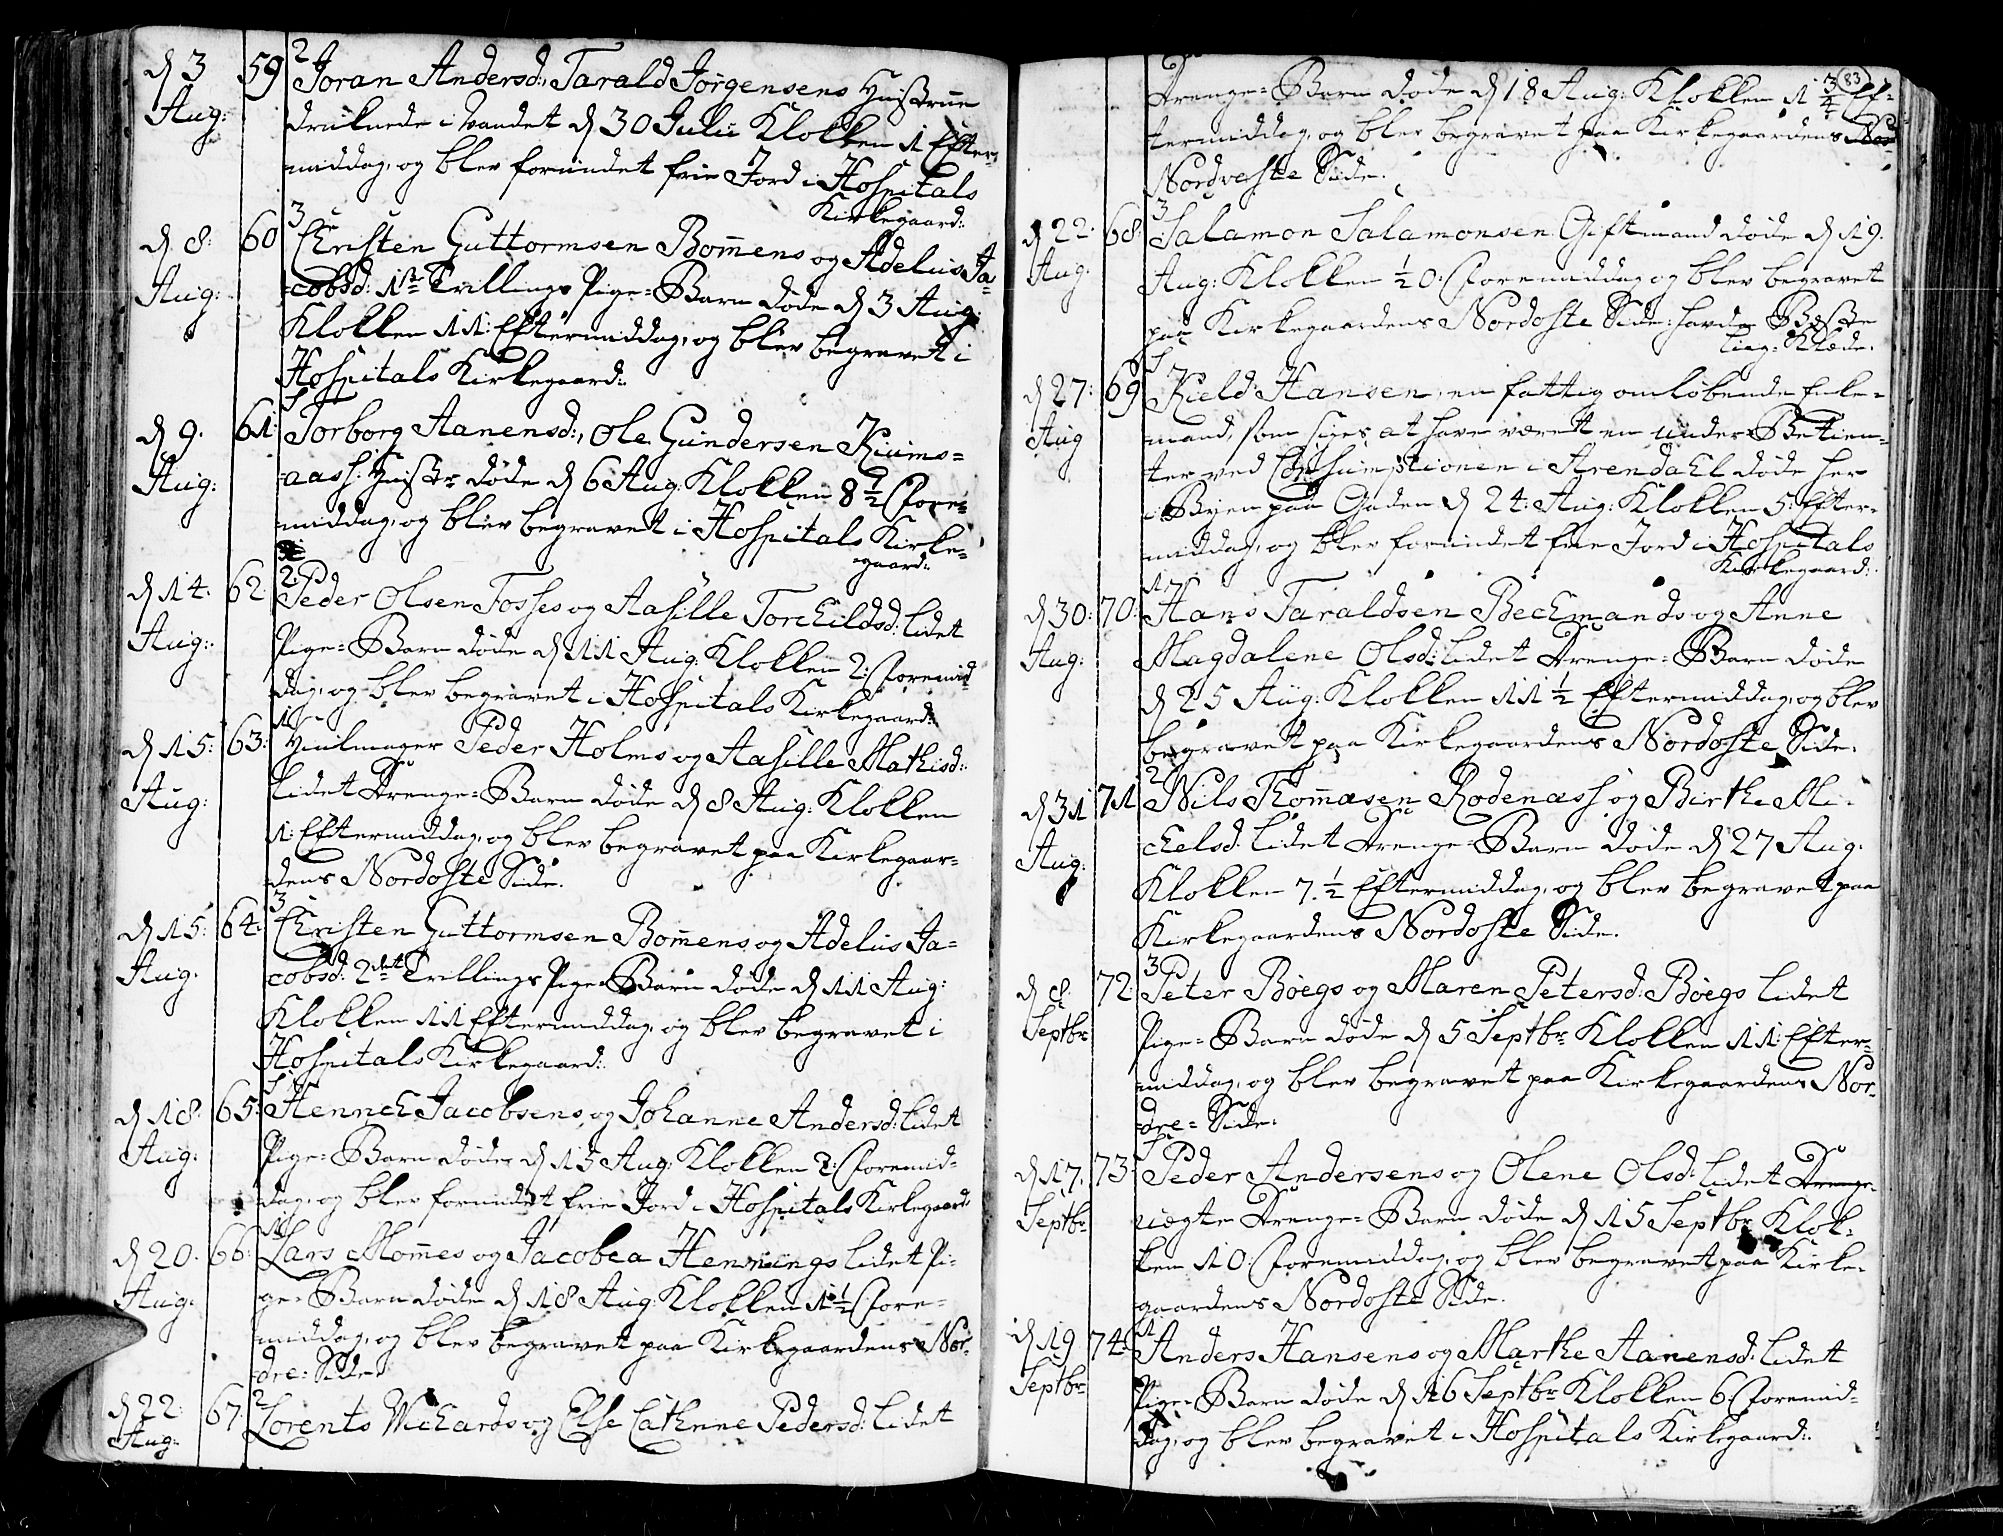 d 3 59 2 Joran Andersd:, Tarald Jörgensens Hustrue
Aug: druknede i Vandet d 30 Julii Klokken 1 Efter=
middag, og blev forundet frie Jord i Hospitals
Kirkegaard:
d 8: 60 3 Christen Guttormsen Bom̅ens og Adelus Ja=
Aug: cobsd: 1ste Trillings Pige=Barn døde d 3 Aug:
Klokken 11: Eftermiddag, og blev begravet i
Hospitals Kirkegaard:
d 9. 61: Torborg Aanensd:, Ole Gundersen Kiums=
Aug: aash: Hustr døde d 6 Aug: Klokken 8 1/2 Fore=
middag, og blev begravet i Hospitals Kirke=
gaard:
d 14. 62: 2: Peder Olsen Fosses og Aasille Torchildsd: lidet
Aug: Pige=Barn døde d 11 Aug: Klokken 2: Formid
dag, og blev begravet i Hospitals Kirkegaard:
d 15: 63: 1 Huulmager Peder Holms og Aasille Mathisd:
Aug: lidet Drenge=Barn døde d 8 Aug: Klokken
1: Eftermiddag, og blev begravet paa Kirkegaar=
dens Nordoste Side.
d 15: 64: 3 Christen Guttormsen Bom̅ens og Adelus Ja=
Aug. cobsd: 2det Trillings Pige=Barn døde d 11 Aug:
Klokken 11 Eftermiddag, og blev begravet i
Hospitals Kirkegaard:
d 18. 65: Hennich Jacobsens og Johanne Andersd: lidet
Aug: Pige=Barn døde d 15 Aug: Klokken 2: Formid=
dag, og blev forundet frie Jord i Hospitals Kirkegaard:
d 20. 66: 1 Lars Mom̅es og Jacobea Hennings lidet Pi=
Aug: ge=Barn døde d 18 Aug: Klokken 1 1/2 Fore=
middag, og blev begravet paa Kirkegaardens Nor=
dre=Side
d 22: 67: 2 Lorents Wichards og Else Cathrine Pedersd: lidet
Aug:
83
Drenge=Barn døde d 18 Aug: Klokken 1 3/4 Ef=
termiddag, og blev begravet paa Kirkegaardens
Nordveste Side.
d 22. 68: 3 Salamon Salamonsen Giftmand døde d 19.
Aug. Aug: Klokken 1/2 0: Formiddag og blev begravet
paa Kirkegaardens Nordoste Side: havde Beste
Liig=Klæde.
d 27: 69 Kield Hansen, en fattig omløbende Enke=
Aug mand, som siges at have været en under Betien=
ter ved Consumptionen i Arendahl døde her
i Byen paa Gaden d 24: Aug: Klokken 5: Efter=
middag, og blev forundet frie Jord i Hospitals
Kirkegaard:
d 30: 70: Hans Taraldsen Bechmands og Anne
Aug: Magdalene Olsd: lidet Drenge=Barn døde
d 25 Aug: Klokken 11 1/2 Eftermiddag, og blev
begravet paa Kirkegaardens Nordoste Side.
d 31 71 2 Nils Thom̅asen Rodenæss og Birthe Mi=
Aug: chelsd: lidet Drenge=Barn døde d 27 Aug:
Klokken 7 1/2 Eftermiddag, og blev begravet paa
Kirkegaardens Nordoste Side.
d 8. 72: 3 Peter Bøegs og Maren Petersd: Bøegs lidet
Septbr Pige=Barn døde d 5 Septbr Klokken 11: Efter=
middag, og blev begravet paa Kirkegaardens Nor=
dre=Side.
d 17. 73: Peder Andersens og Olene Olsd: lidet Drenge
Septbr uægte Drenge=Barn døde d 15 Septbr Klok=
ken 10: Formiddag, og blev begravet paa Kirke=
gaardens Nordoste Side.
d 19 74: 1 Anders Hansens og Marthe Aanensd: lidet
Septbr Pige=Barn døde d 16 Septbr Klokken 6 Formid=
dag, og blev begravet i Hospitals Kirkegaard: